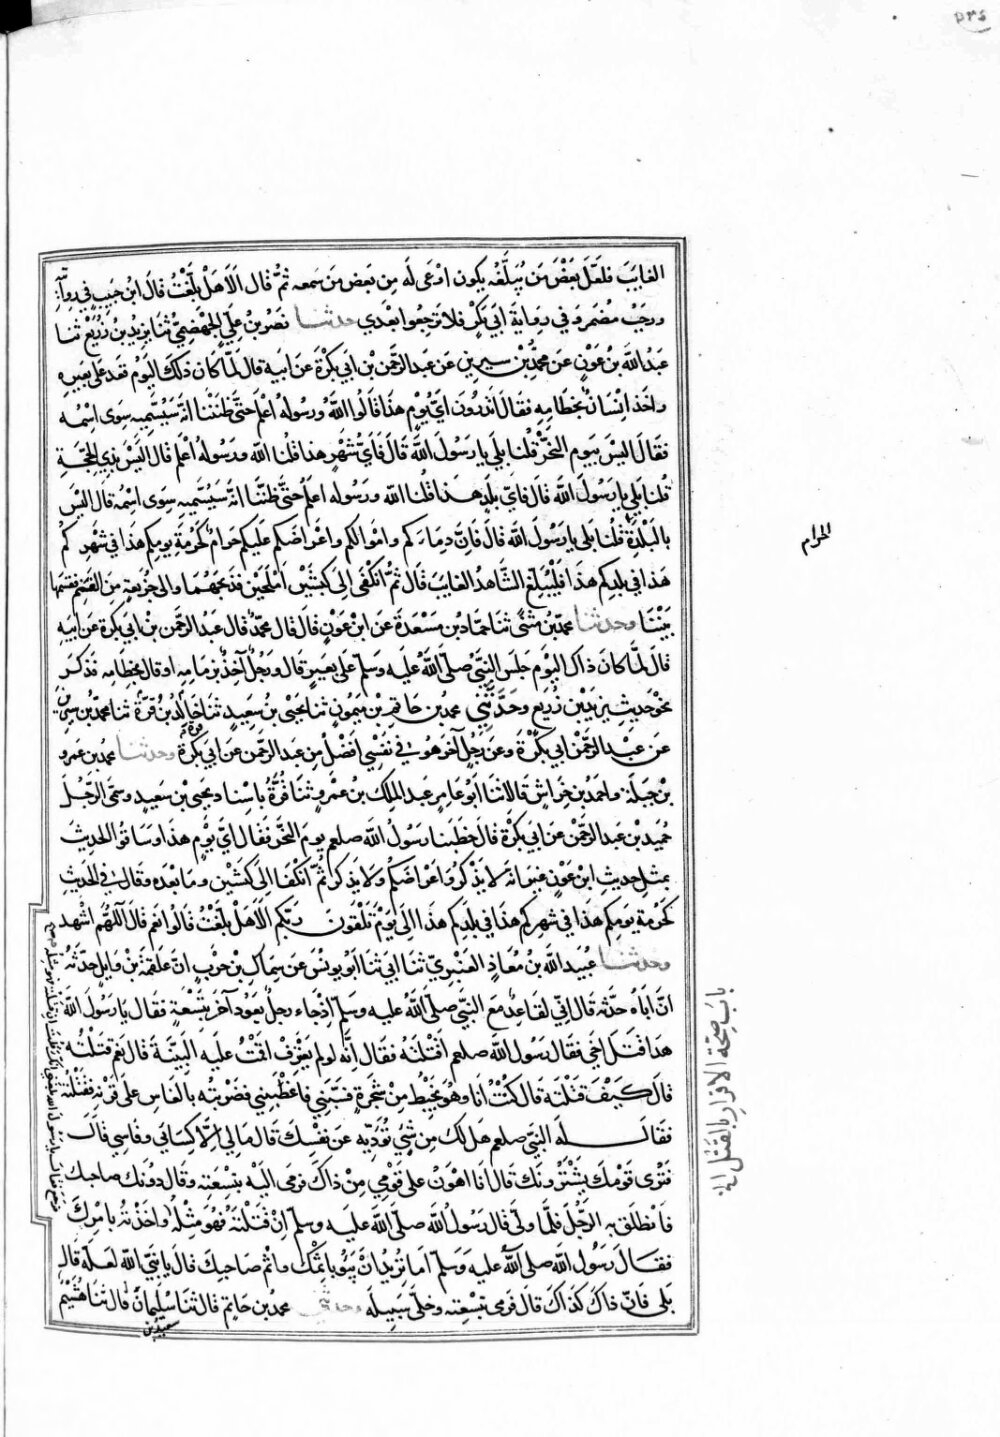 ٥٣٤
الغايبَ فلعَلَ بَعْضَ مَن يُبَلَّغُه يكون اوْعَى لَه مِن بَعض مَن سَمعه ثمَّ قال الاَ هَلْ بلّغْتُ قالَ ابن حَبيبٍ في روايته
ورجَبُ مضَر وَفي رواية ابَي بَكرٍ فلا ترجعوا بعْدي حدثنا نصرُ بنُ عليّ الجَهضَمِيّ ثنا يزيد بن زُرَيْعٍ ثنا
عَبْدُ اللّه بن عَوْنٍ عَن محمّد بنْ سيرين عَن عَبد الرَّحمٰن بْن ابي بكْرَةَ عَن ابَيه قالَ لَمّا كانَ ذلكَ اليَوْمُ قعَد على بَعيره
واخَذ اِنسَانٌ بخطامِه فقَالَ اتدرُونَ ايَّ يَوْمٍ هَذا قالوا اللّه ورسوله اعْلم حتّى ظننّا انهّ سَيُسَمّيه سِوَى اسْمه
فقالَ اليْسَ بيَوم النّحر قُلنا بلى يا رَسُولَ اللّه قالَ فاَيُّ شهْرٍ هذا قلنا اللّه ورَسُوله اعْلم قالَ اليْسَ بذي الحِجّةِ
قلنا بَلى يا رسُولَ اللّه قالَ فايّ بلَدٍ هَذا قلنا اللّه ورسوله اعلمُ حتَّى ظننّا انهّ سَيُسَمّيه سِوَى اسْمه قال اليْسَ
بالبَلدَة قُلنا بَلى يا رَسُولَ اللّه قالَ فاِنّ دِماءَكم واَموالكم واَعْراضكم عَليكم حَرامٌ كحُرمَةِ يومِكم هذا في شَهْركُم
الحرام
هَذا في بلدِكم هَذا فليُبلغ الشاهدُ الغايبَ قال ثمَّ انكفَى الىَ كبشَيْن امْلحَيْن فذبحَهُما والى جُزَيعَةٍ مِن الغَنَم فقسَمَها
بَيْنَنا وحدثنا محمّد بن مثنّى ثنا حمّاد بن مَسْعَدَةَ عَن ابْن عَوْنٍ قالَ قال محمّدٌ قال عَبدُ الرّحمٰن بْن ابي بكرةَ عَن ابَيه
قالَ لمّا كانَ ذاكَ اليوَم جَلَسَ النَّبيّ صَلّى اللّه عَليْه وَسَلّم عَلى بَعيرٍ قال ورَجُلٌ آخِذٌ بزمامِه او قال بخطامِه فذكرَ
نحْو حَديث يزيدَ بْن زُرَيع وحَدَّثني محمّد بن حاتِم بْن مَيْمُونٍ ثنا يَحيَى بن سَعِيدٍ ثنا قُرّةُ بن خالِدٍ ثنا محمّد بن سيرين
عَن عَبْد الرّحمٰن ابي بَكْرَةَ وعَن رَجُلٍ آخَر هُو في نَفْسي افْضَلُ مِن عَبد الرّحمٰن عَن ابي بَكْرَة وحدثنا محمّد بن عَمرو
بْن جَبَلة واحمَد بن خِراشٍ قالا ثنا ابَوُ عَامِر عبد الملِك بن عَمْرٍو ثنا قُرَّةُ باِسْناد يحيَى بن سَعِيد وسَمَّى الرّجُلَ
حُمَيد بْن عَبد الرَّحمٰن عَن ابي بَكْرةَ قالَ خطبنا رَسُولُ اللّه صلعم يومَ النحْر فقالَ ايُّ يَوْمٍ هَذا وسَاقوُا الحَديثَ
بمثْل حَديثِ ابن عَوْنٍ غير انهّ لا يَذْكُر وَاعْراضكُم وَلا يذكر ثمَّ انكَفَأ الىَ كبشَيْن ومَا بَعْده وقالَ في الحَديثِ
كحُرمَةِ يومِكم هذا في شهركم هذا في بلدِكم هَذا الى يَوْمِ تلْقَون رَبّكم الاَ هَلْ بَلّغْتُ قالوُا نعَم قالَ اللّهُمّ اشْهد
وحدثنا عُبَيد اللّه بن مُعاذ العَنبَريّ ثنا ابَي ثنا ابَو يونس عَن سِماك بْن حَربٍ انَّ عَلقمَة بْن وايِلٍ حدّثهُ
انَّ ابَاه حَدَّثه قالَ اِنّي لقَاعِدٌ مَعَ النَّبي صَلّى اللّه عَليْه وسَلّم اِذ جَاء رجلٌ يقودُ آخرَ بنِسْعَةٍ فقالَ يا رَسُولَ اللّه
هَذا قتَلَ اخي فقالَ رسُولُ اللّه صلعم اقَتلتَهُ فقالَ اِنَّه لو لم يعْترِف اقمْتُ عليه البَيّنَةَ قالَ نعَم قتلتُه
قالَ كيْفَ قتلتَه قالَ كُنتُ انا وهُو نختبِطُ مِنْ شجَرَةٍ فسَبَّني فاغْضبَني فضَرَبْته بالفَاس على قَرْنه فقتلتُه
فقالَ لَه النَّبيّ صلعم هل لكَ مِن شَيْءٍ تُؤَدّيه عَن نَفْسِكَ قالَ مَا لي الّا كِسَائي وفَاسي قالَ
فَتَرى قَوْمَكَ يَشْتَرُونكَ قالَ انا اهْوَن على قوْمي مِنْ ذاكَ فرمَى اليَه بنسْعَتِه وقالَ دُونكَ صاحبَك
فانطلق به الرّجُلُ فلمّا ولَّى قالَ رسوُلُ اللّه صَلّى اللّه عَليْه وسَلّم اِن قتَلَهُ فهُو مِثْلُه واَخَذْتُه بامْركَ
فقالَ رَسُولُ اللّه صَلى اللّه عَليه وَسَلّم امَا تريدُ انَ يَبُوءَ باِثمِكَ واثمِ صَاحبكَ قالَ يا نبَيَّ اللّه لعَلّه قالَ
بَلى فاِنّ ذاكَ كذاكَ قالَ فرمَى بنسْعَته وخلّى سَبيله وحدثني محمد بن حَاتِم قالَ ثنا سَعيد بن سُليمانَ قالَ ثنا هُشَيْم
بابُ صِحّة الاقرارِ بالقَتْل الخ